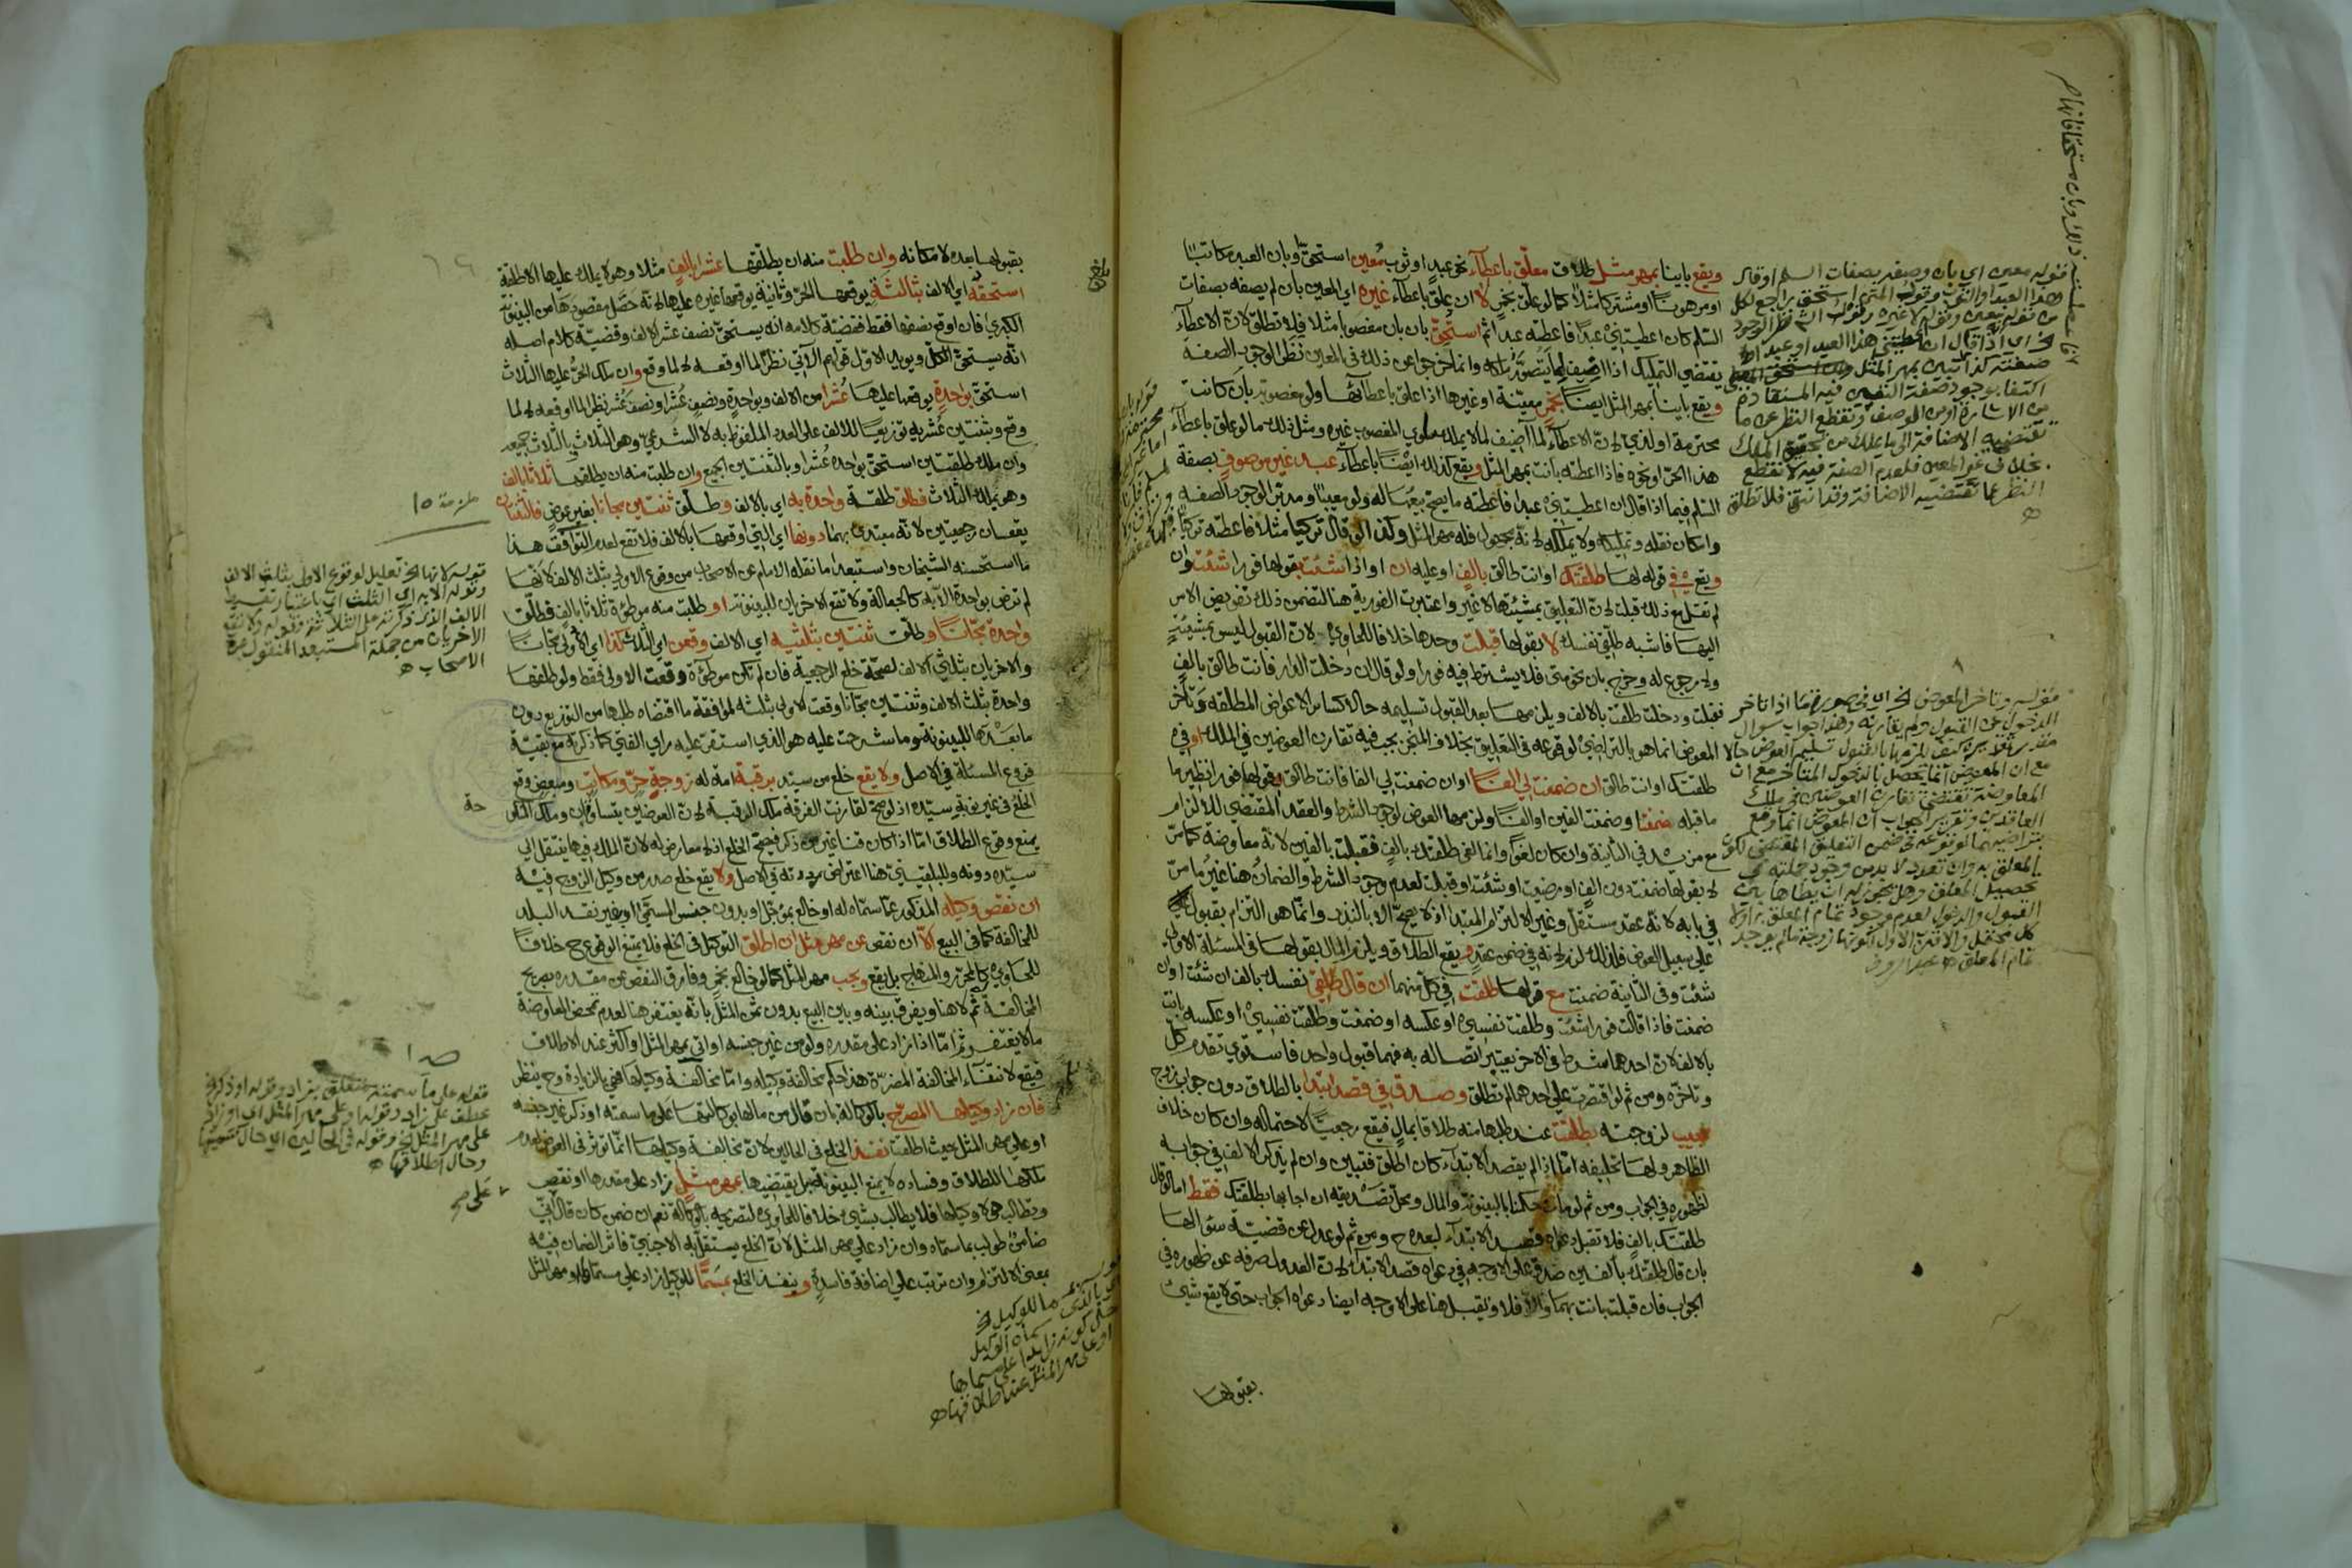 ويقع باينا بمهر مثل طلاق معلق باعطاء نحو عبد او ثوب معين استحق او بان العبد مكاتبا
او مرهونا او مشتركا مثلا كما لو علق بخمر لا ان علق باعطاء غيره اي المعين بان لم يصفه بصفات
السلم كان اعطيتني عبدا فاعطته عبدا ثم استحق بان بان مغصوبا مثلا فلا تطلق لان الاعطاء
يقتضي التمليك اذا اضيف لما يتصور تملكه وانما خرجوا عن ذلك في المعين نظرا لوجود الصفة
ويقع باينا بمهر المثل ايضا بخمر معينة او غيرها اذا علق باعطائها ولو مغصوبة بان كانت
محترمة او لذمي لان الاعطاء لما اضيف لما لا يملك ساوي المغصوب غيره ومثل ذلك ما لو علق باعطاء
هذا الحر او نحوه فاذا اعطته بانت بمهر المثل ويقع كذلك ايضا باعطاء عبد غير موصوف بصفة
السلم فيما اذا قال ان اعطيتني عبدا فاعطته ما يصح بيعها له ولو معيبا ومدبرا لوجود الصفة
وامكان نقله وتمليكه ولا يملكه لانه مجهول فله مهر المثل وكذا لو قال تركيا مثلا فاعطته تركيا
ويقع في قوله لها طلقتك او انت طالق بالف او عليه ان او اذا شئت بقولها فورا شئت وان
لم تقل مع ذلك قبلت لان التعليق بمشيئتها لا غير واعتبرت الفورية هنا لتضمن ذلك تفويض الامر
اليها فاشبه طلقي نفسك لا بقولها قبلت وحدها خلافا للحاوي لان القبول ليس بمشيئة
ولا رجوع له وخرج بان نحو متى فلا يشترط فيه فورا ولو قال ان دخلت الدار فانت طالق بالف
فقبلت ودخلت طلقت بالالف ويلزمها بعد القبول تسليمه حالا كساير الاعواض المطلقة وتاخر
المعوض انما هو بالتراضي لوقوعه في التعليق بخلاف المنجز يجب فيه تقارن العوضين في الملك او في
طلقتك او انت طالق ان ضمنت لي الفا او ان ضمنت لي الفا فانت طالق بقولها فورا نظير ما
ما قبله ضمنا وضمنت الفين او الفا ولزمها العوض لوجود الشرط والعقد المقتضي للالزام
مع مزيد في الثانية وان كان لغوا وانما لغى طلقتك بالف فقبلت بالفين لانه معاوضة كما مر
لا بقولها ضمنت دون الف او رضيت او شئت او قبلت لعدم وجود الشرط والضمان هنا غير ما مر
في بابه لانه عقد مستقل وغير الالتزام المبتدا اذ لا يصح الا بالنذر وانما هو التزام بقبول
على سبيل العوض فلذلك لزم لانه في ضمن عقد ويقع الطلاق ويلزم المال بقولها في المسئلة الاولى
شئت وفي الثانية ضمنت مع قولها طلقت في كل منهما ان قال طلقي نفسك بالف ان شئت او ان
ضمنت فاذا قالت فورا شئت وطلقت نفسي او عكسه او ضمنت وطلقت نفسي او عكسه بانت
بالالف لان احدهما شرط في الاخر يعتبر اتصاله به فهما قبول واحد فاستوي تقدم كل
وتاخره ومن ثم لو اقتصرت على احدهما لم تطلق وصدق في قصد ابتدا بالطلاق دون جواب زوج
مجيب لزوجته بطلقت عند طلبها منه طلاقا بمال فيقع رجعيا لاحتماله وان كان خلاف
الظاهر ولها تحليفه اما اذا لم يقصد الابتداء كان اطلق فتبين وان لم يذكر الالف في جوابه
لظهوره في الجواب ومن ثم لو مات حكمنا بالبينونة والمال ومحل تصديقه ان اجابها بطلقتك فقط اما لو قال
طلقتك بالف فلا تقبل دعواه قصد الابتداء لبعده ومن ثم لو عدل عن قضية سؤالها
بان قال طلقتك بالفين صدق على الاوجه في دعواه قصد الابتداء لان العدول صرفه عن ظهوره في
الجواب فان قبلت بانت بهما والا فلا ويقبل هنا على الاوجه ايضا دعواه الجواب حتى لا يقع شيئ
بقبولها
قوله معين اي بان وصفه بصفات السلم او قال
هذا العبد او الثوب وقوله المتن استحق راجع لكل
قوله وتاخر المعوض الخ اي في صورة ما اذا تاخر
الدخول عن القبول ولم يقارنه وهذا جواب سوال
مع ان المعوض انما يحصل بالدخول المتاخر مع ان
المعاوضة تقتضي تقارن العوضين في ملك
العاقدين وتقرير الجواب ان المعوض انما وقع
بتراضيهما لوقوعه في ضمن التعليق المقتضي لكون
القبول والدخول لعدم وجود تمام المعلق به اولا
كل محتمل والاقرب الاول لكونها زوجة ما لم يوجد
تمام المعلق به عبد الروف
بلغ
بقبولها بعده لامكانه وان طلبت منه ان يطلقها عشرا بالف مثلا وهو لا يملك عليها الا طلقة
استحقه اي الالف بثالثة يوقعها الحر وثانية يوقعها غيره عليها لانه حصل مقصودها من البينونة
الكبرى فان اوقع نصفها فقط فقضية كلامه انه يستحق نصف عشر الالف وقضية كلام اصله
انه يستحق الكل ويويد الاول قولهم الاتي نظرا لما اوقعه لا لما وقع وان ملك الحر عليها الثلاث
استحق بواحدة يوقعها عليها عشرا من الالف وبواحدة ونصف عشرا ونصف عشر نظرا لما اوقعه لا لما
وقع وبثنتين عشريه توزيعا للالف على العدد الملفوظ به لا الشرعي وهو الثلاث وبالثلاث جميعه
وان ملك طلقتين استحق بواحدة عشرا وبالثنتين الجميع وان طلبت منه ان يطلقها ثلاثا بالف
وهو يملك الثلاث فطلق طلقة واحدة به اي بالالف وطلق ثنتين مجانا بغير عوض فالثنتان
يقعان رجعيتين لانه مبتدئ بهما دونها اي التي اوقعها بالالف فلا تقع لعدم التوافق هذا
ما استحسنه الشيخان واستبعدا ما نقله الامام عن الاصحاب من وقوع الاولى بثلث الالف لانها
لم ترض بواحدة الا به كالجعالة ولا تقع الاخريان للبينونة او طلبت منه موطوة ثلاثا بالف فطلق
واحدة مجانا وطلق ثنتين بثلثيه اي الالف وقعن اي الثلاث كذا اي الاولى مجانا
والاخريان بثلثي الالف لصحة خلع الرجعية فان لم تكن موطوءة وقعت الاولى فقط ولو طلقها
واحدة بثلث الالف وثنتين مجانا وقعت الاولى بثلثه لموافقة ما اقتضاه طلبها من التوزيع دون
ما بعدها للبينونة وما شرحت عليه هو الذي استقر عليه راي الفتى كما ذكرته مع بقية
فروع المسئلة في الاصل ولا يقع خلع من سيد برقبة امة له زوجة حر ومكاتب ومبعض وقع
الخلع في غير نوبة سيده اذ لو صح لقارنت الفرقة ملك الرقبة لان العوضين يتساوقان وملك النكاح
يمنع وقوع الطلاق اما اذا كان قنا غير من ذكر فيصح الخلع اذ لا معارض له لان الملك فيها ينتقل الى
سيده دونه وللبلقيني هنا اعتراض رددته في الاصل ولا يقع خلع صدر من وكيل الزوج فيه
ان نقص وكيله المذكور عما سماه له او خالع بمؤجل او بدون جنس المسمى او بغير نقد البلد
للمخالفة كما في البيع الا ان نقص عن مهر مثل ان اطلق التوكيل في الخلع فلا يمتنع الوقوع ح خلافا
للحاوي كالمحرر والمنهاج بل يقع ويجب مهر المثل كما لو خالع بخمر وفارق النقص عن مقدره بصريح
المخالفة ثم لا هنا ويفرق بينه وبين البيع بدون ثمن المثل بانه يغتفر هنا لعدم تمحض المعاوضة
ما لا يغتفر ثم اما اذا زاد على مقدره ولو من غير جنسه او اتى بمهر المثل او اكثر عند الاطلاق
فيقع لانتفاء المخالفة المضرة هذا حكم مخالفة وكيله واما مخالفة وكيلها فهي بالزيادة وح ينظر
فان زاد وكيلها المصرح بالوكالة بان قال من مالها بوكالتها على ما سمته او ذكر غير جنسه
او على مهر المثل حيث اطلقت نفذ الخلع في الحالين لان مخالفة وكيلها انما توثر في العوض لعدم
ملكها للطلاق وفساده لا يمنع البينونة بل يقتضيها بمهر مثل زاد على مقدرها او نقص
وتطالب هي لا وكيلها فلا يطالب بشيء خلافا للحاوي لتصريحه بالوكالة نعم ان ضمن كان قال اني
ضامن طولب بما سماه وان زاد على مهر المثل لان الخلع يستقل به الاجنبي فاثر الضمان فيه
بمعنى الالتزام وان ترتب على اضافة فاسدة وينفذ الخلع بمسمى للوكيل زاد على مسماها او مهر المثل
ملزمة ١٥
قوله لانها الخ تعليل لوقوع الاولى بثلث الالف
وقوله الا به اي الثلث اي باعتبار تقسيط
الالف الذي ذكرته على الثلاثة وقوله ولا تقع
الاخريان من جملة المستبعد المنقول عن
الاصحاب
قوله على ما سمته متعلق بزاد وقوله او ذكر غير
عطف على زاد وقوله او على مهر المثل اي او زاد
على مهر المثل الخ وقوله في الحالين اي حال تسميتها
وحال اطلاقها
سماه الوكيل
او على مهر المثل عند اطلاقها